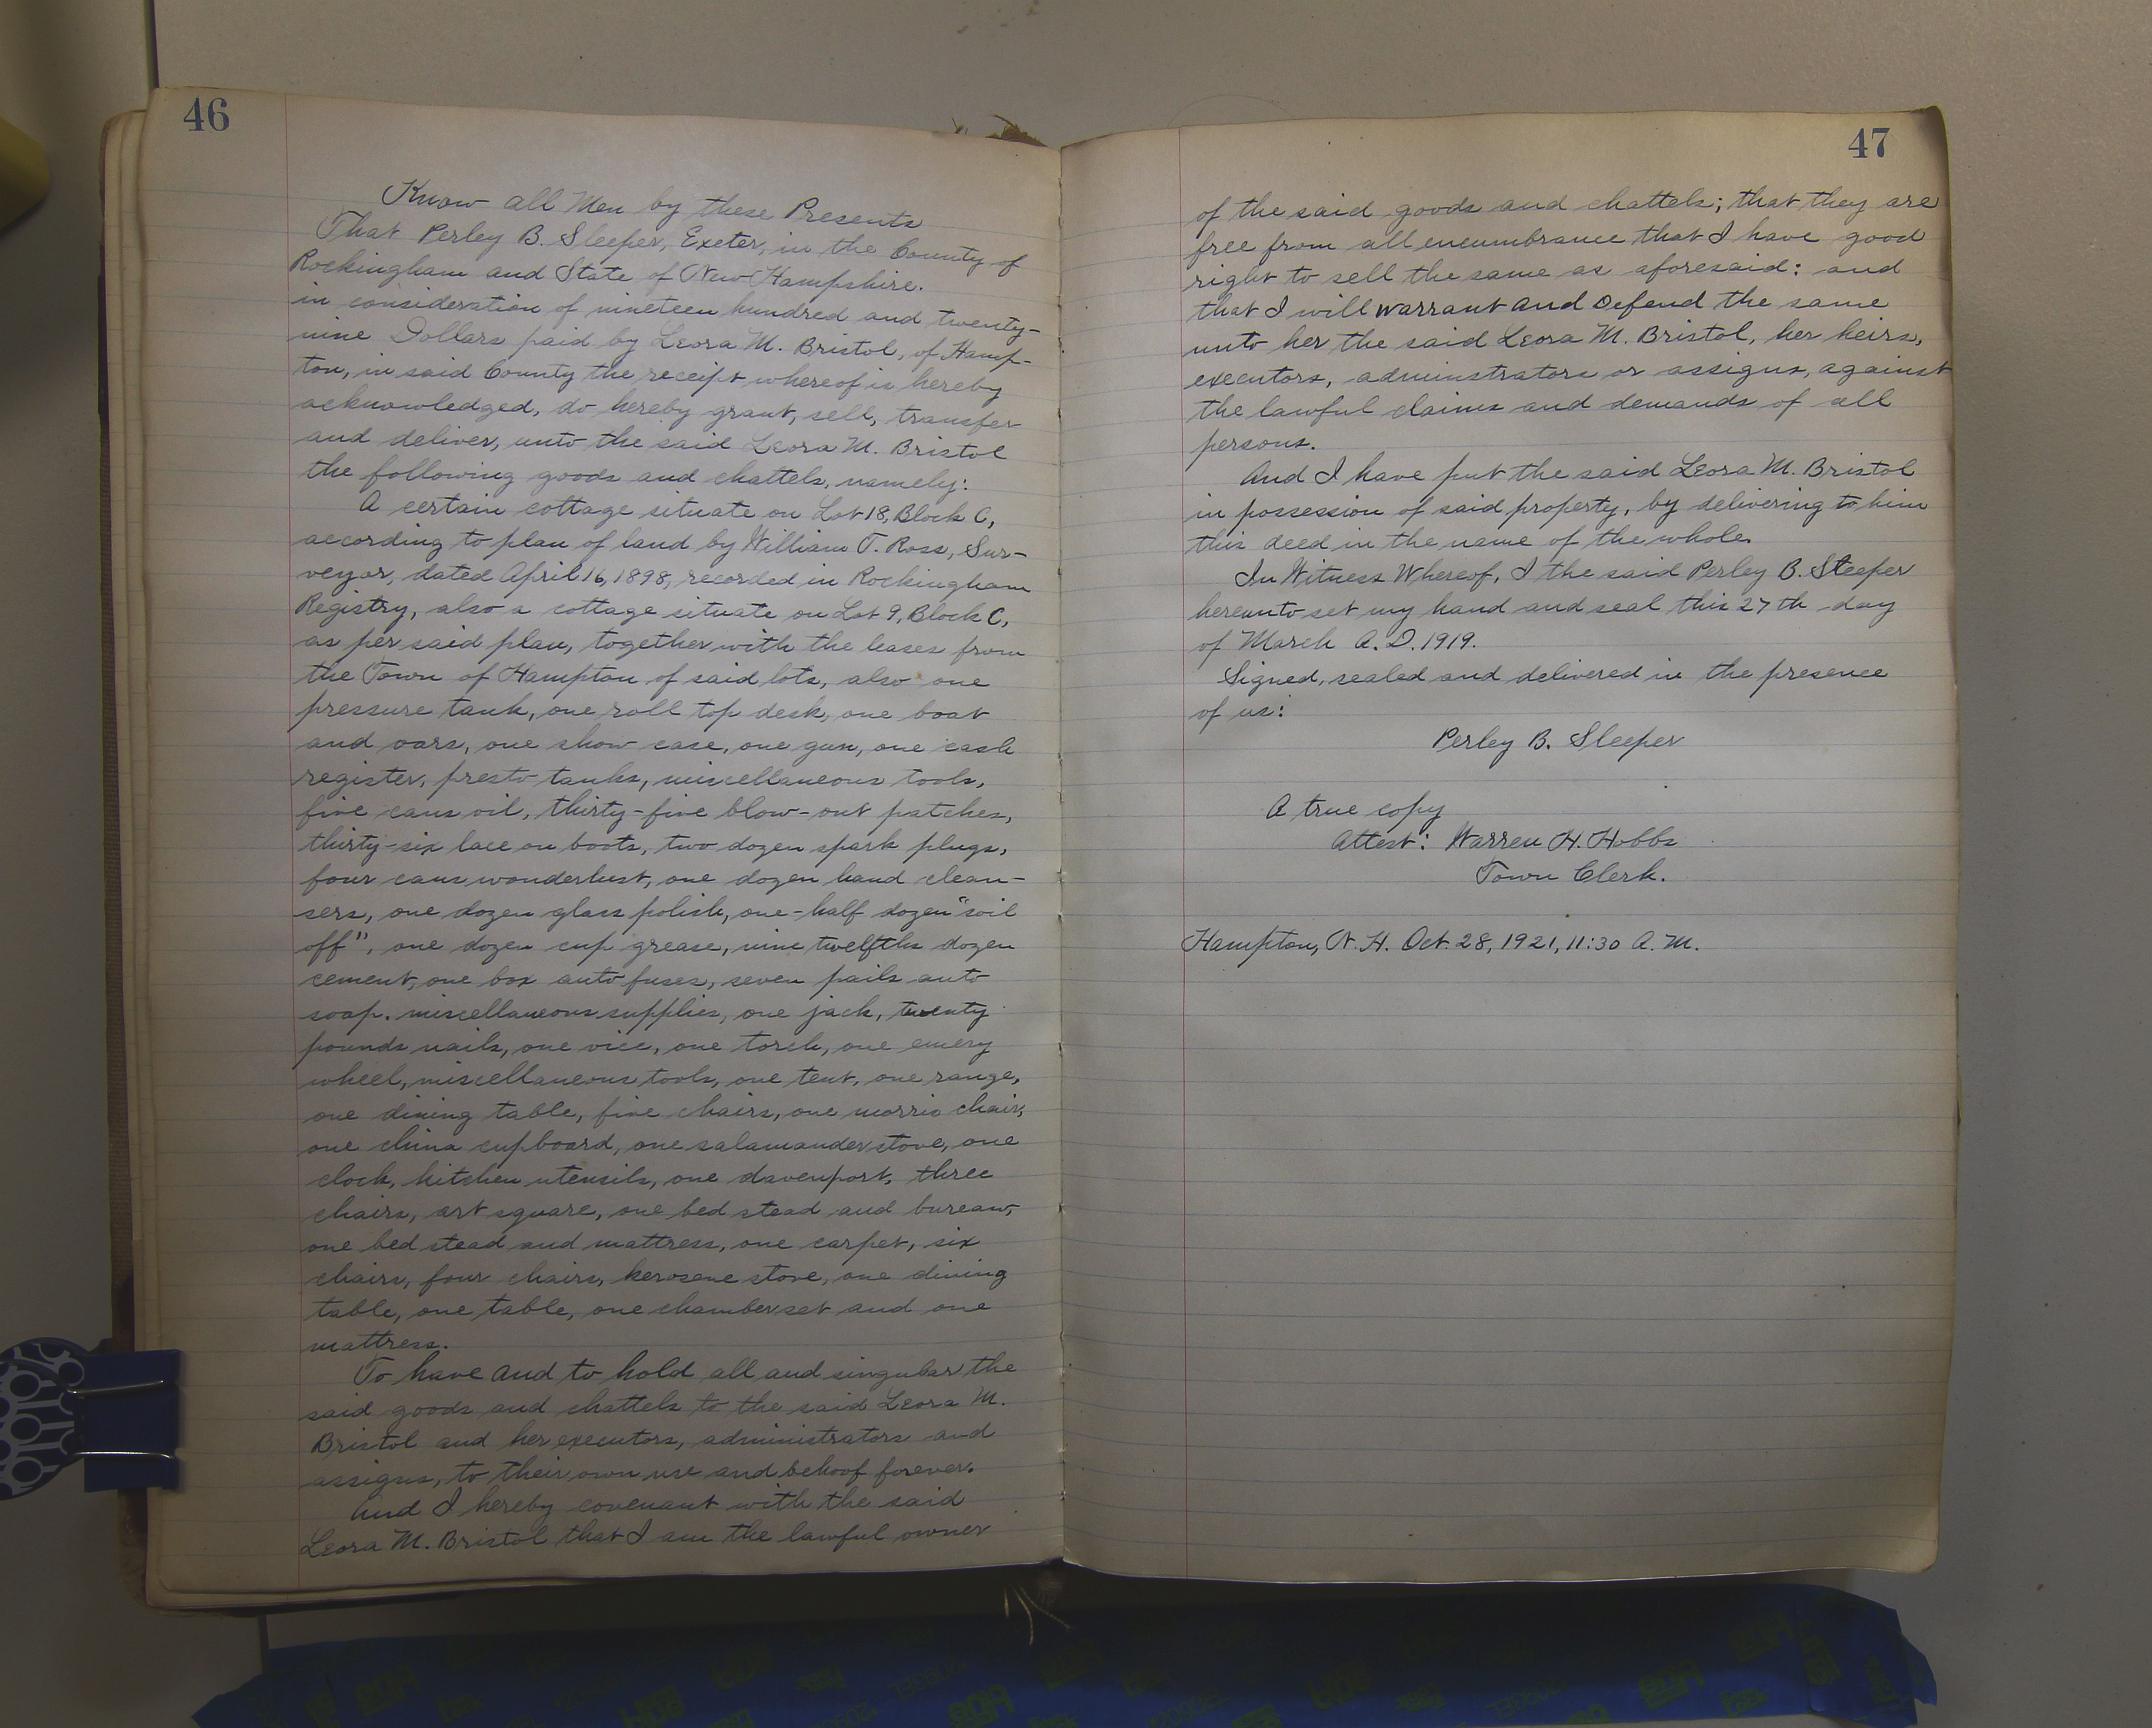 46
Know all Men by these Presents
That Perley B. Sleeper, Exeter, in the County of
Rockingham and State of New Hampshire.
in consideration of nineteen hundred and twenty-
nine Dollars paid by Leora M. Bristol, of Hamp-
ton, in said County the receipt whereof is hereby
acknowledged, do hereby grant, sell, transfer
and deliver, unto the said Leora M. Bristol
the following goods and chattels, namely:
A certain cottage situate on Lot 18, Block C,
according to plan of land by William T. Ross, Sur-
veyor, dated April 16, 1898, recorded in Rockingham
Registry, also a cottage situate on Lot 9, Block C,
as per said plan, together with the leases from
the Town of Hampton of said lots, also one
pressure tank, one roll top desk, one boat
and oars, one show case, one gun, one cash
register, presto tanks, miscellaneous tools,
five cans oil, thirty-five blow-out patches,
thirty-six lace on boots, two dozen spark plugs,
four cans wonderlust, one dozen hand clean-
sers, one dozen glass polish, one-half dozen "soil
off", one dozen cup grease, nine twelfths dozen
cement, one box auto fuses, seven pails auto
soap. miscellaneous supplies, one jack, twenty
pounds nails, one vice, one torch, one emery
wheel, miscellaneous tools, one tent, one range,
one dining table, five chairs, one morris chair,
one china cupboard, one salamander stove, one
clock, kitchen utensils, one davenport, three
chairs, art square, one bed stead and bureau,
one bed stead and mattress, one carpet, six
chairs, four chairs, kerosene stove, one dining
table, one table, one chamber set and one
mattress.
To have and to hold all and singular the
said goods and chattels to the said Leora M.
Bristol and her executors, administrators and
assigns, to their own use and behoof forever.
And I hereby covenant with the said
Leora M. Bristol that I am the lawful owner
47
of the said goods and chattels; that they are
free from all encumbrance that I have good
right to sell the same as aforesaid: and
that I will warrant and Defend the same
unto her the said Leora M. Bristol, her heirs,
executors, adminstrators or assigns, against
the lawful claims and demands of all
persons.
And I have put the said Leora M. Bristol
in possession of said property, by delivering to him
this deed in the name of the whole.
In Witness Whereof, I the said Perley B. Sleeper
hereunto set my hand and seal this 27th day
of March A.D. 1919.
Signed, sealed and delivered in the presence
of us:
Perley B. Sleeper
A true copy
Attest: Warren H. Hobbs
Town Clerk.
Hampton, N.H. Oct. 28, 1921, 11:30 A.M.